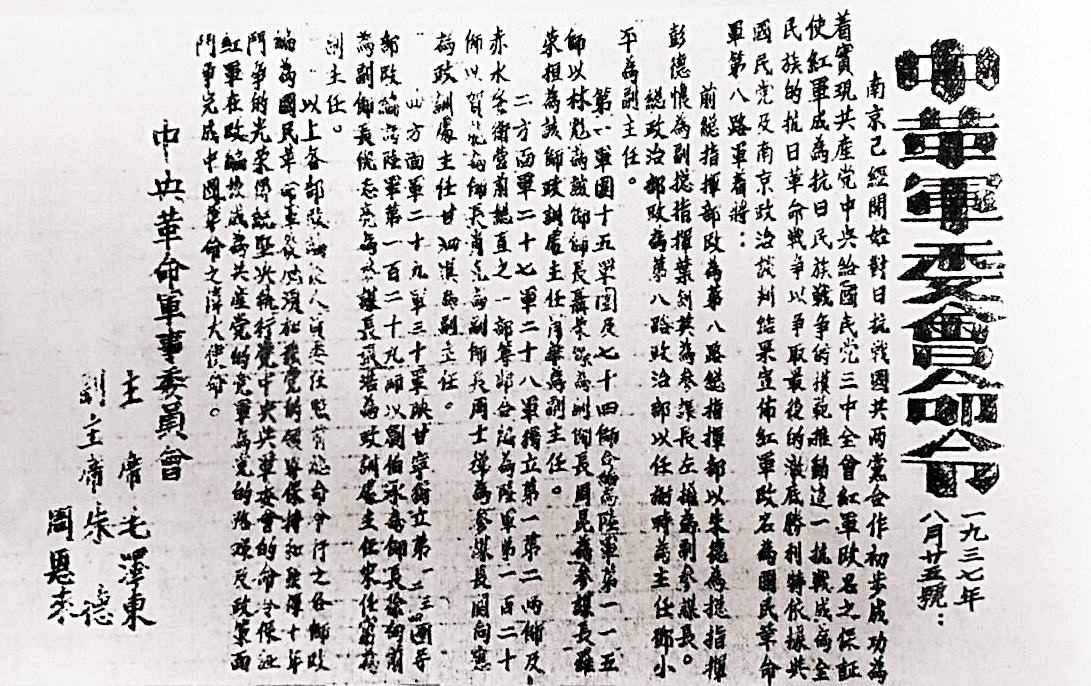 中革軍委會命令
一九三七年
八月廿五號：
南京已經開始對日抗戰國共兩黨合作初步成功為
着實現共產党中央給國民党三中全會紅軍改名之保証
使紅軍成為抗日民族戰爭的模範推動這一抗戰成為全
民族的抗日革命戰爭以爭取最後的澈底勝利特依據共
國民党及南京政治談判結果宣佈紅軍改名為國民革命
軍第八路軍着將：
前總指揮部改為第八路總指揮部以朱德為總指揮
彭德懷為副總指揮葉劍英為參謀長左權為副參謀長。
總政治部改為第八路政治部以任弼時為主任鄧小
平為副主任。
第一軍團十五軍團及七十四師合編為陸軍第一一五
師以林彪為該師師長聶榮臻為副師長周昆為參謀長羅
榮桓為該師政訓處主任肖華為副主任。
二方面軍二十七軍二十八軍獨立第一第二兩師及
赤水警衛營前總直之一部等部合編為陸軍第一百二十
師以賀龍為師長肖克為副師長周士梯為參謀長関向應
為政訓處主任甘泗淇為副主任。
四方面軍二十九軍三十軍陝甘寧獨立第一二三四團等
部改編為陸軍第一百二十九師以劉伯承為師長徐向前
為副師長倪志亮為參謀長張浩為政訓處主任宋任窮為
副主任。
以上各部改編後人員委任照前總命令行之各師改
編為國民革命軍後必須加強党的領導保持和發揮十年
鬥爭的光榮傳統堅決執行党中央與軍委會的命令保証
紅軍在改編後成為共產党的党軍為党的路線及政策而
鬥爭完成中國革命之偉大使命。
中央革命軍事委員會
主席 毛澤東
副主席 朱德
周恩來